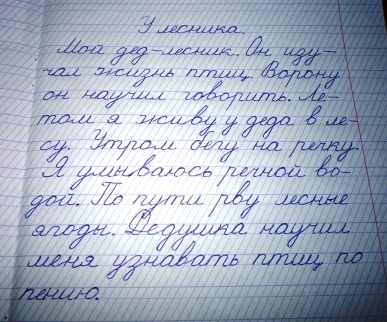 У лесника.
Мой дед-лесник. Он изу-
чал жизнь птиц. Ворону
он научил говорить. Ле-
том я живу у деда в ле-
су. Утром бегу на речку.
Я умываюсь речной во-
дой. По пути рву лесные
ягоды. Дедушка научил
меня узнавать птиц по
пению.